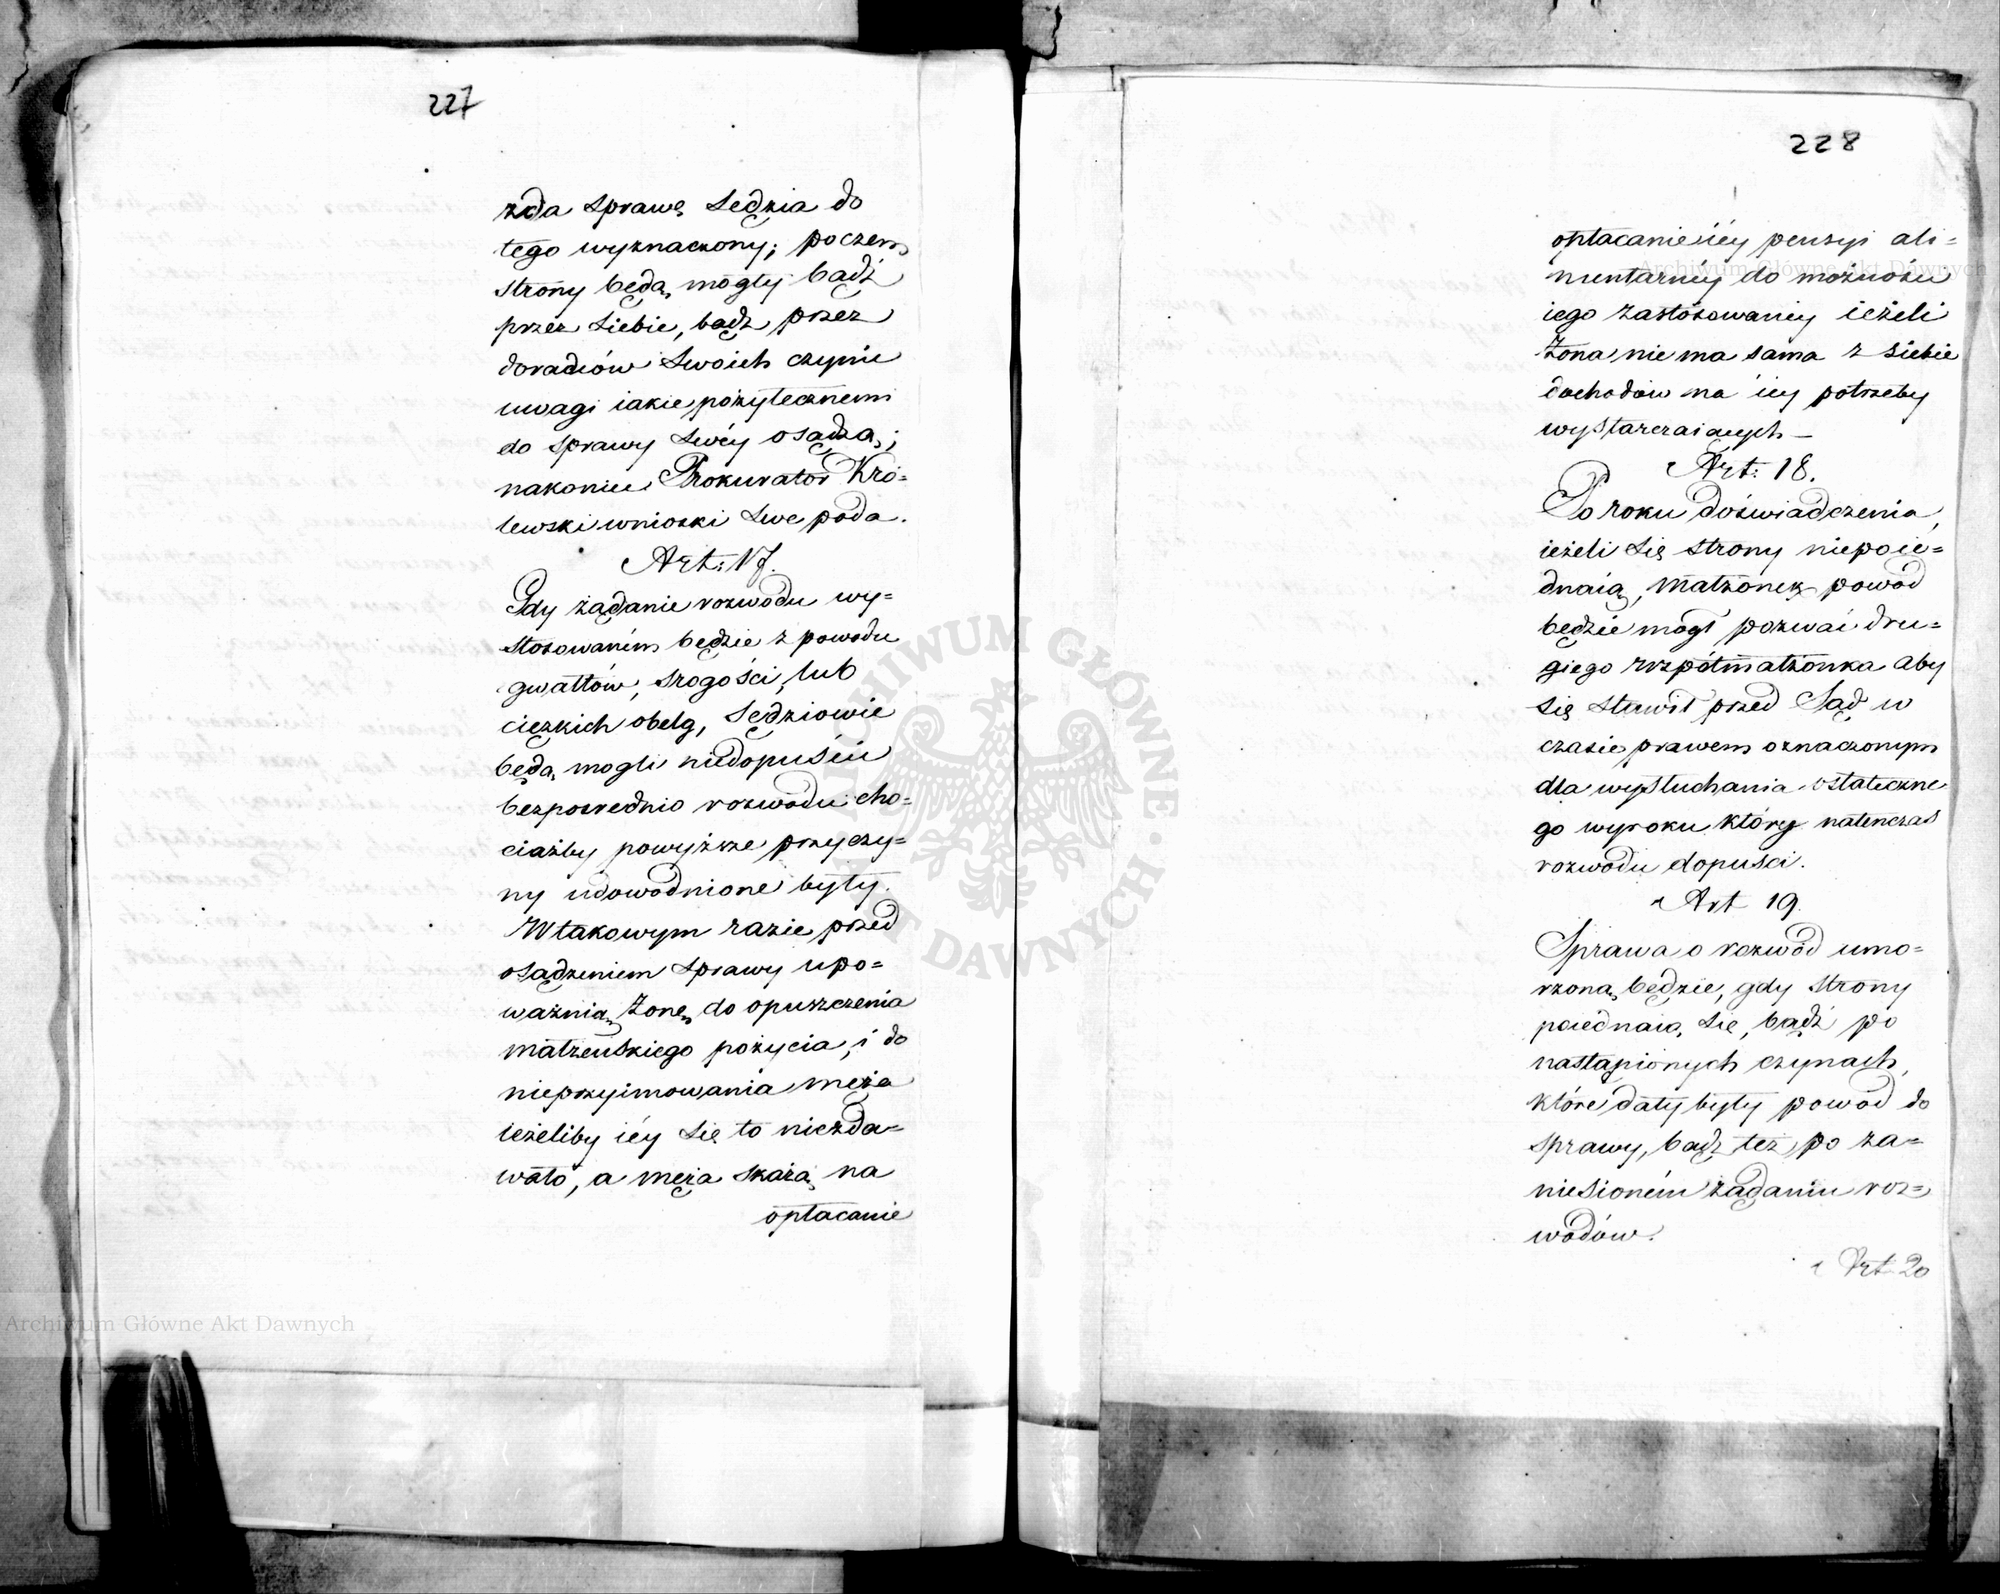 227
zda sprawę Sędzia do
tego wyznaczony; poczem
strony będą mogły bądź
przez siebie, bądź przez
doradców swoich czynić
uwagi iakie pożytecznemi
do sprawy swéy osądzą;
nakoniec Prokurator Kró=
lewski wnioski swe poda.
Art: 17.
Gdy żądanie rozwodu wy=
stosowaném będzie z powodu
gwałtów, srogości, lub
ciężkich obelg, Sędziowie
będą mogli niedopuścić
bezpośrednio rozwodu cho=
ciażby powyższe przyczy=
ny udowodnione były.
W takowym razie przed
osądzeniem sprawy upo=
ważnią żonę do opuszczenia
małżeńskiego pożycia, i do
nieprzyimowania męża
ieżeliby iéy się to niezda=
wało, a męża skażą na
opłacanie
228
opłacanie iéy pensyi ali=
mentarnéy do możności
iego zastósowanéy ieżeli
żona nie ma sama z siebie
dochodów na iéy potrzeby
wystarczaiących —
Art: 18.
Po roku doświadczenia,
ieżeli się strony niepoie=
dnaią, małżonek powód
będzie mógł pozwać dru=
giego współmałżonka aby
się stawił przed Sąd w
czasie prawem oznaczonym
dla wysłuchania ostateczne
go wyroku który natenczas
rozwodu dopuści.
Art 19.
Sprawa o rozwód umo=
rzoną będzie, gdy strony
poiednaią się, bądź po
nastąpionych czynach,
które dały były powód do
sprawy, bądź też po za=
niesioném żądaniu roz=
wodów.
Art 20
Archiwum Główne Akt Dawnych
Archiwum Główne Akt Dawnych
ARCHIWUM GŁÓWNE AKT DAWNYCH